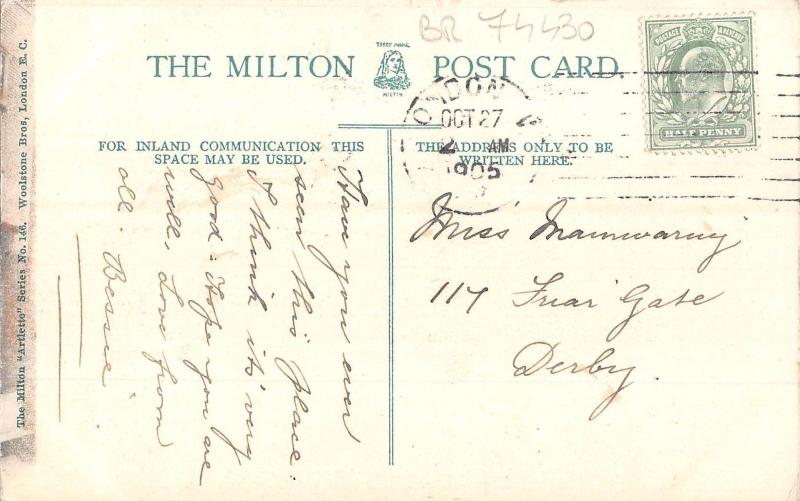 BR 74430
THE MILTON POST CARD.
TRADE MARK
MILTON
POSTAGE REVENUE
HALF PENNY
LONDON
OCT 27
2 AM
1905
FOR INLAND COMMUNICATION THIS
SPACE MAY BE USED.
THE ADDRESS ONLY TO BE
WRITTEN HERE.
Have you ever
seen this place.
I think it's very
good. Hope you are
well, Love from
all. Bessie
Miss Mainwaring
117 Friar Gate
Derby.
The Milton "Artlette" Series No. 146. Woolstone Bros, London E. C.